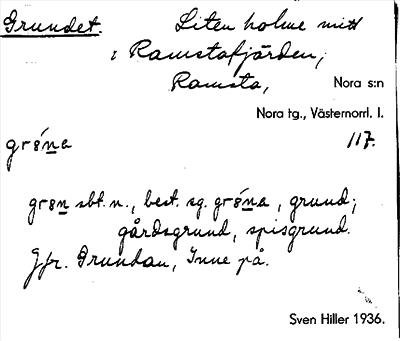 Grundet. Liten holme mitt
i Ramstafjärden,
Ramsta, Nora s:n
Nora tg., Västernorrl. l.
117.
gr8́na
gr8n sbt. n., best. sg. gr8́na, grund;
gårdsgrund, spisgrund.
Jfr. Grundan, Inne på.
Sven Hiller 1936.